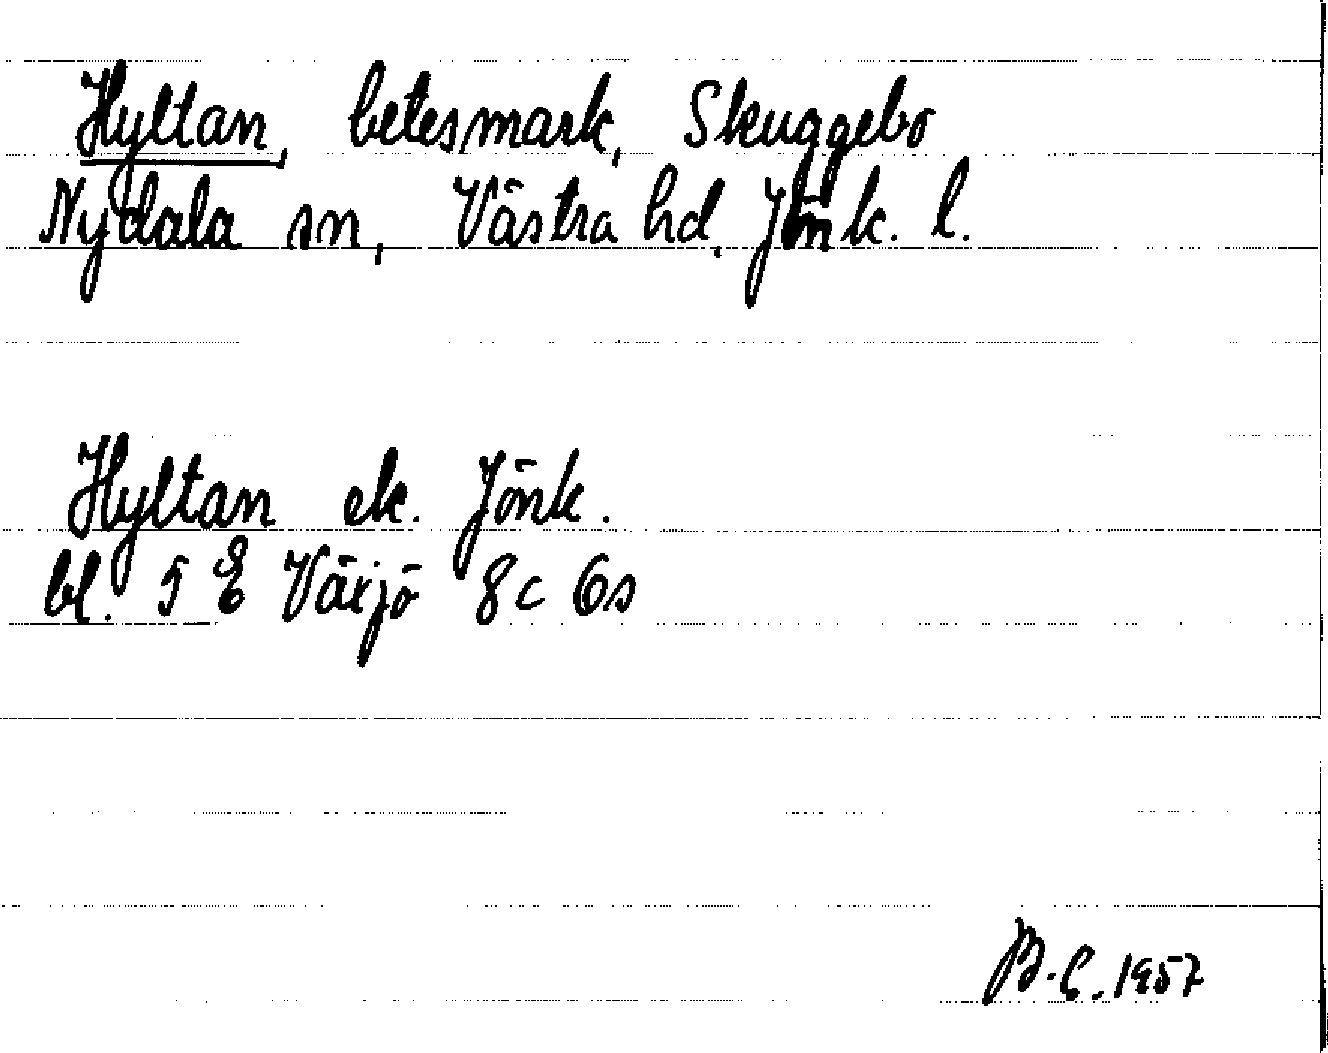 Hyltan, betesmark, Skuggebo
Nydala sn, Västra hd. Jönk. l.
Hyltan ek. Jönk.
bl. 5 E Växjö 8c 6s
B.E. 1957